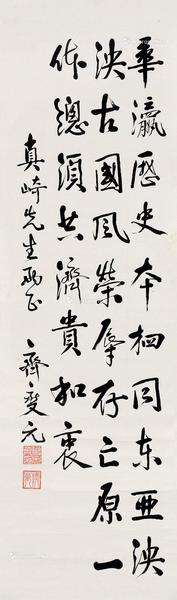 華瀛歷史本相同東亞泱
泱古國風榮辱存亡原一
体總須共濟貴和衷
真崎先生両正
齊燮元